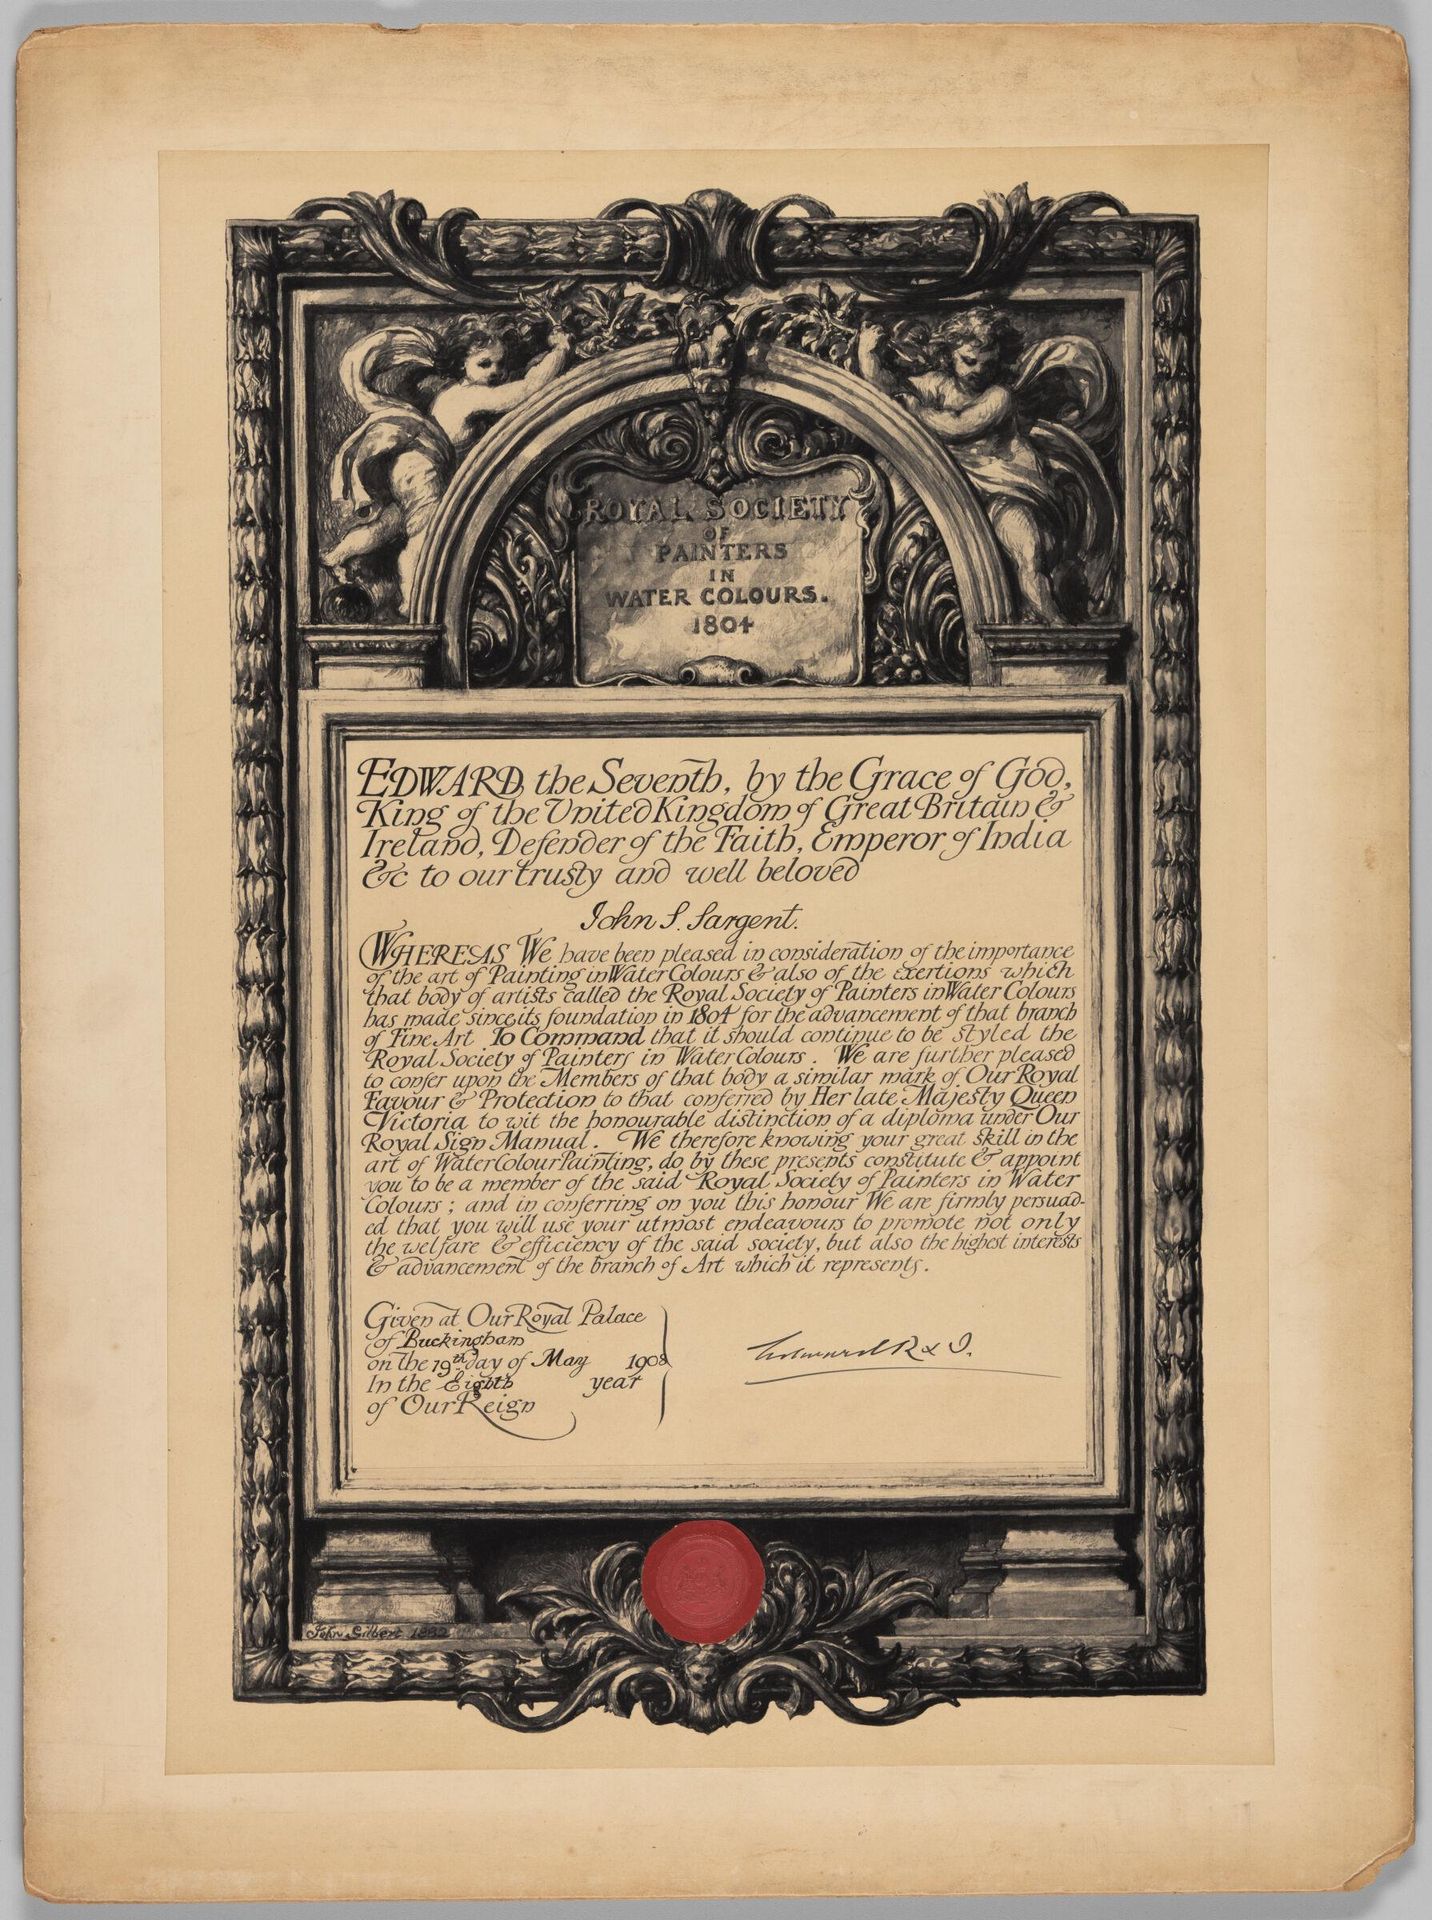 ROYAL SOCIETY
OF
PAINTERS
IN
WATER COLOURS.
1804
EDWARD, the Seventh, by the Grace of God,
King of the United Kingdom of Great Britain &
Ireland, Defender of the Faith, Emperor of India
&c to our trusty and well beloved
John S. Sargent.
WHEREAS We have been pleased in consideration of the importance
of the art of Painting in Water Colours & also of the exertions which
that body of artists called the Royal Society of Painters in Water Colours
has made since its foundation in 1804 for the advancement of that branch
of Fine Art To Command that it should continue to be styled the
Royal Society of Painters in Water Colours. We are further pleased
to confer upon the Members of that body a similar mark of Our Royal
Favour & Protection to that conferred by Her late Majesty Queen
Victoria to wit the honourable distinction of a diploma under Our
Royal Sign Manual. We therefore knowing your great skill in the
art of Water Colour Painting, do by these presents constitute & appoint
you to be a member of the said Royal Society of Painters in Water
Colours; and in conferring on you this honour We are firmly persuad-
ed that you will use your utmost endeavours to promote not only
the welfare & efficiency of the said society, but also the highest interests
& advancement of the branch of Art which it represents.
Given at Our Royal Palace
of Buckingham
on the 19th day of May 1908
In the Eighth year
of Our Reign
Edward R & I.
John Gilbert 1882